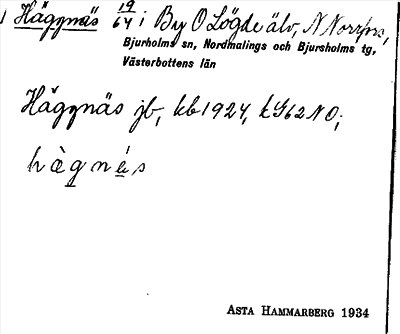 Häggnäs 19/64 i By O Lögde älv, N Norrfors,
Bjurholms sn, Nordmalings och Bjursholms tg,
Västerbottens län
Häggnäs jb, kb 1924, kG 62 NO;
hàgnés
ASTA HAMMARBERG 1934